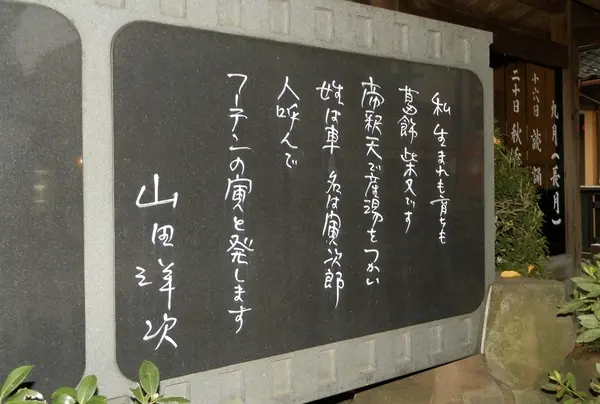 九月(長月)
十六日 読誦
二十日 秋
私 生まれも育ちも
葛飾 柴又です
帝釈天で産湯をつかい
姓は車 名は寅次郎
人呼んで
フーテンの寅と発します
山田洋次